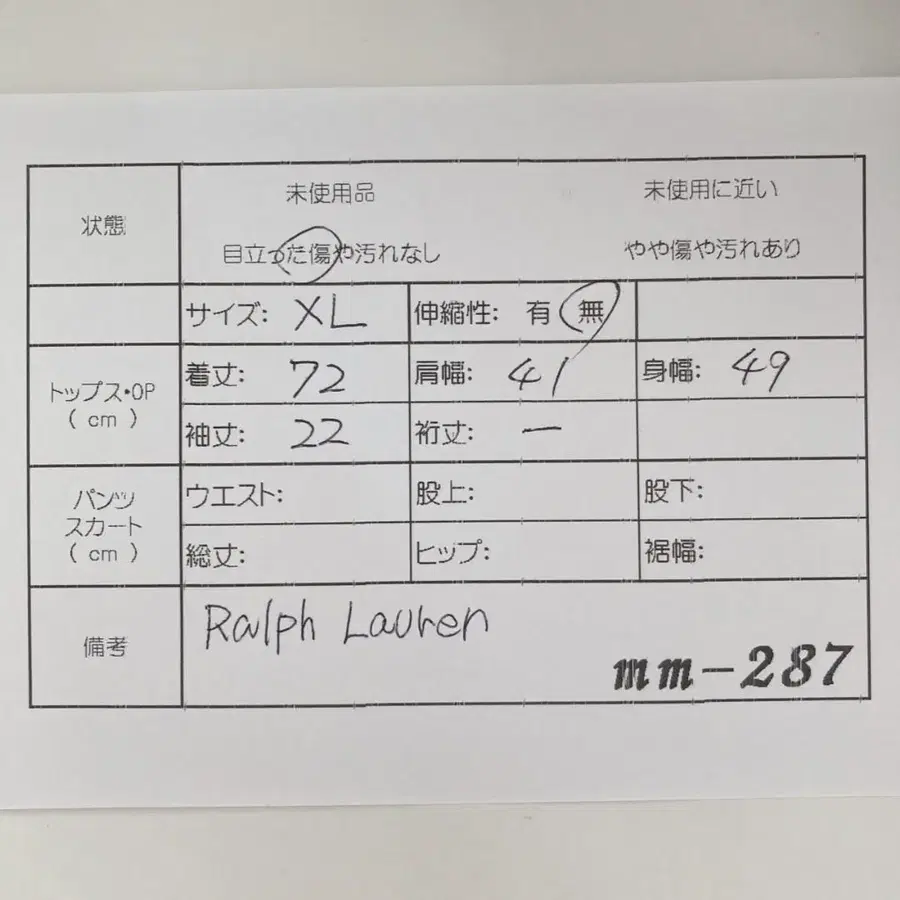 状態
未使用品 未使用に近い
目立った傷や汚れなし やや傷や汚れあり
サイズ: XL 伸縮性: 有 無
トップス・OP
( cm )
着丈: 72 肩幅: 41 身幅: 49
袖丈: 22 裄丈: ー
パンツ
スカート
( cm )
ウエスト: 股上: 股下:
総丈: ヒップ: 裾幅:
備考
Ralph Lauren
mm-287